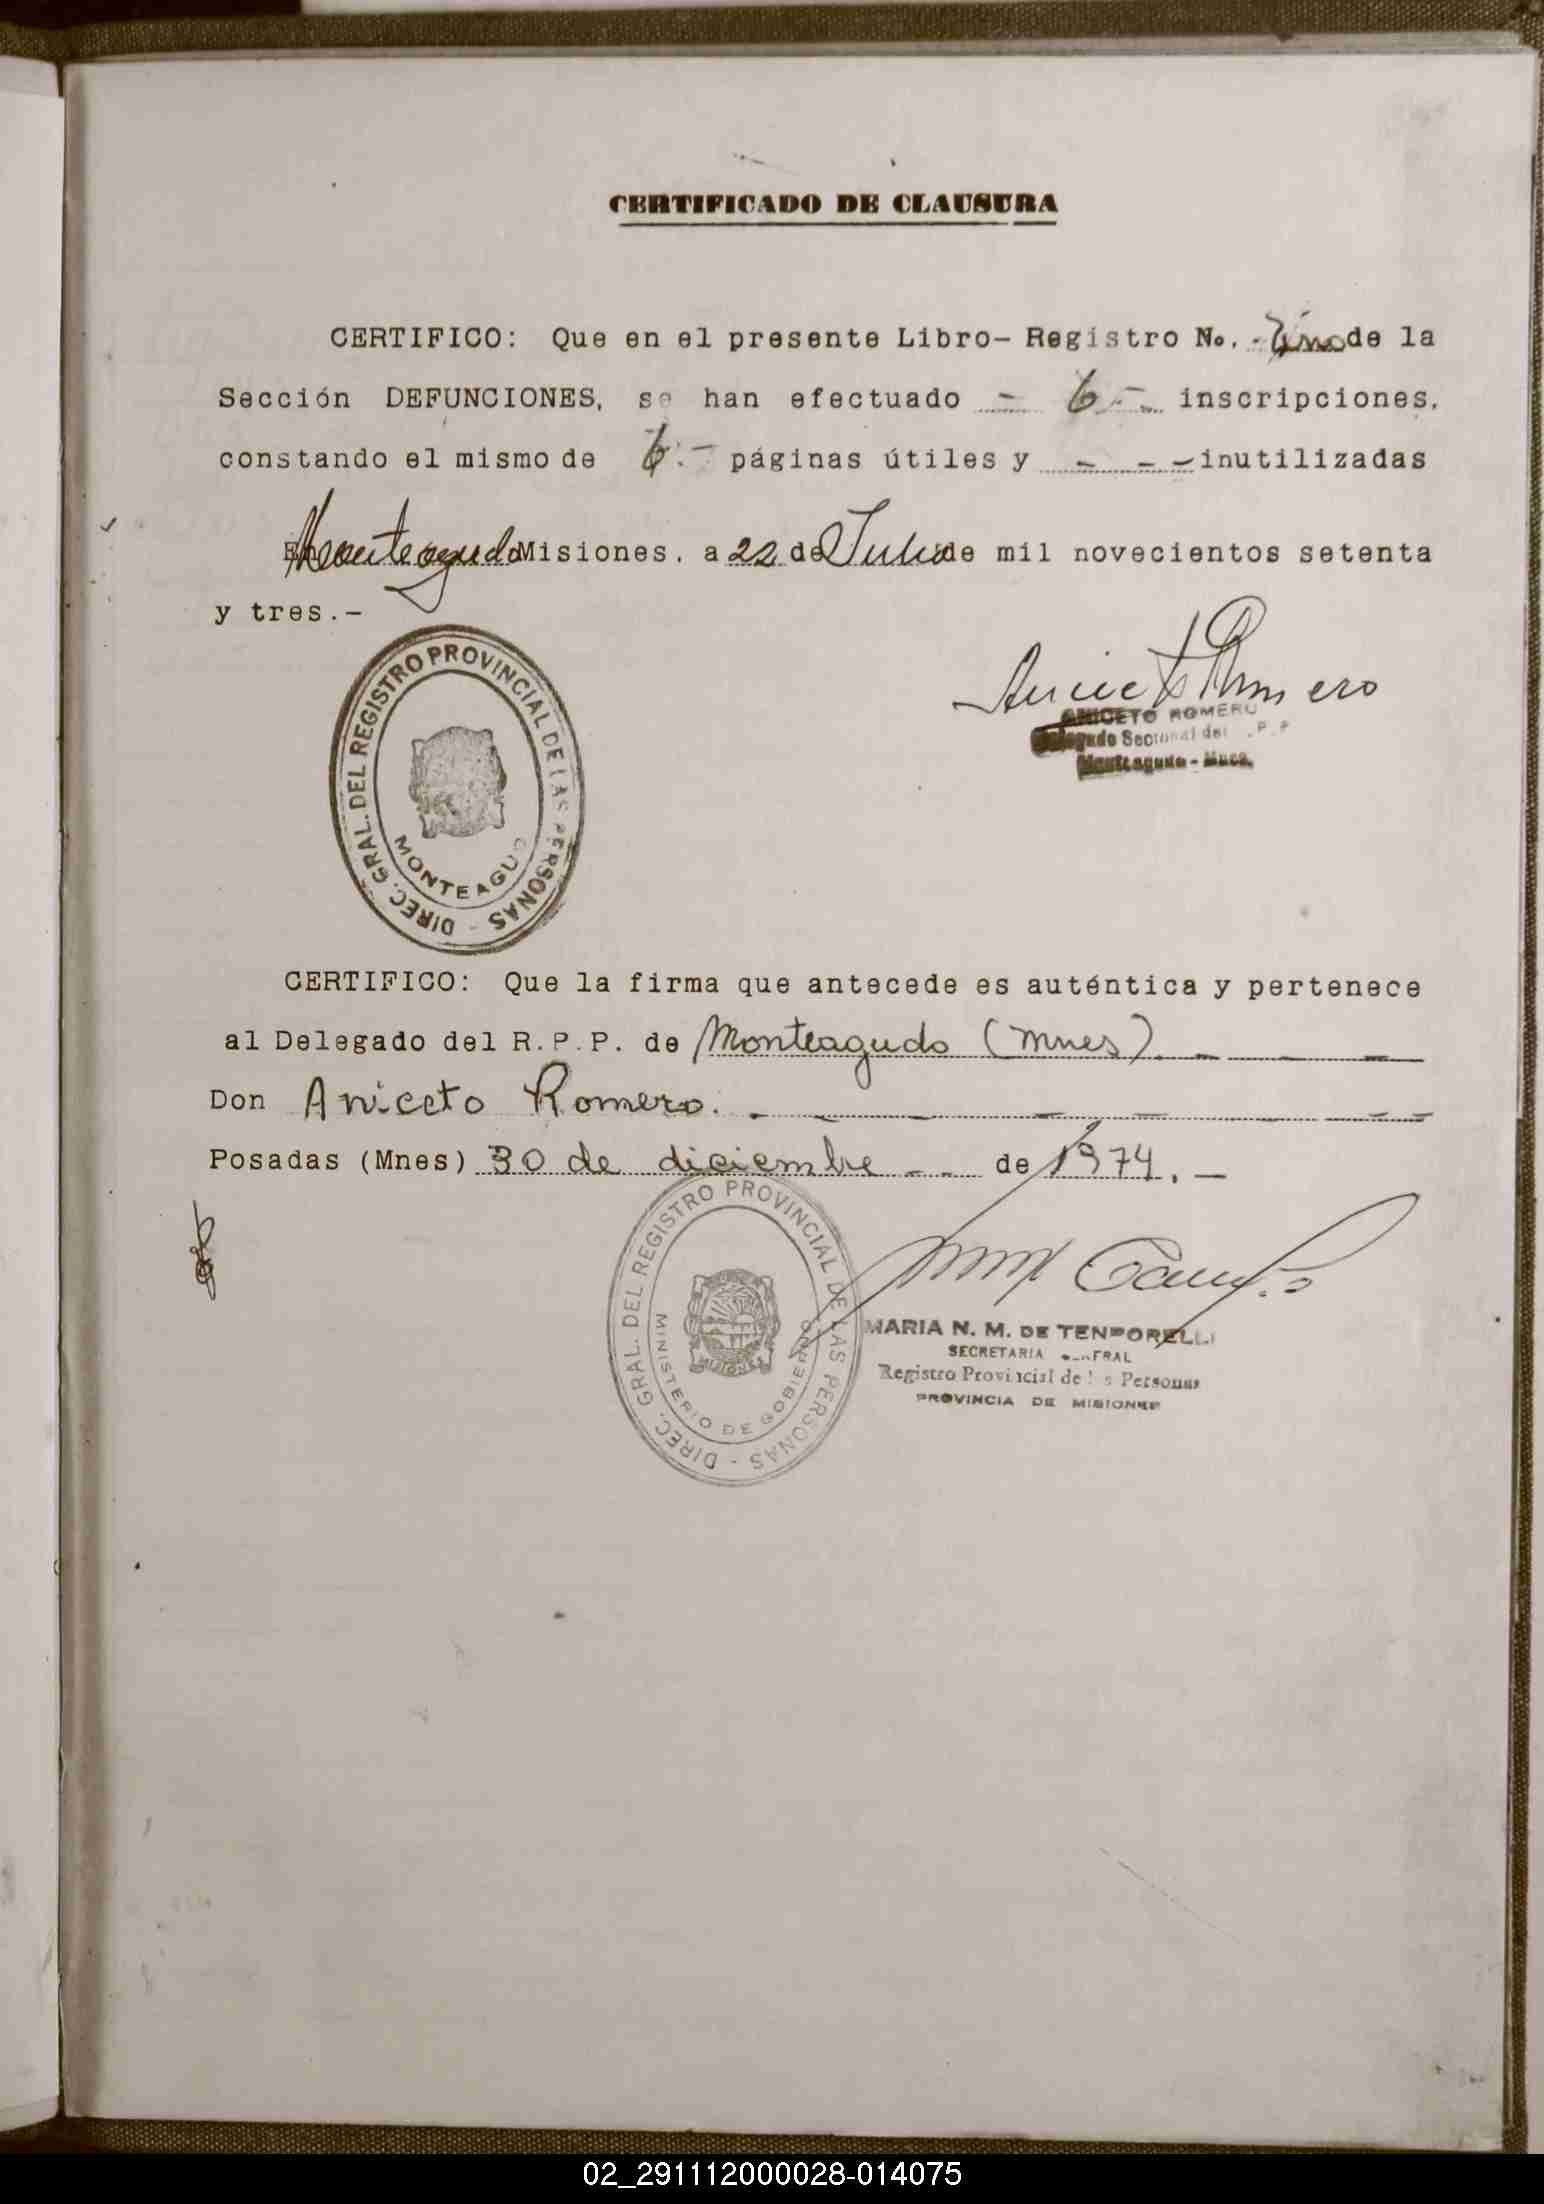 CERTIFICADO DE CLAUSURA
CERTIFICO: Que en el presente Libro-Registro No. Uno de la
Sección DEFUNCIONES, se han efectuado - 6.- inscripciones,
constando el mismo de 6.- páginas útiles y - - - inutilizadas
En Monteagudo Misiones, a 22 de Julio de mil novecientos setenta
y tres.-
Aniceto Romero
ANICETO ROMERO
Delegado Seccional del R.P.P
Monteagudo - Mnes.
DIREC. GRAL. DEL REGISTRO PROVINCIAL DE LAS PERSONAS -
MONTEAGUDO
CERTIFICO: Que la firma que antecede es auténtica y pertenece
al Delegado del R.P.P. de Monteagudo (Mnes). - - -
Don Aniceto Romero. - - - - - - -
Posadas (Mnes) 30 de diciembre - - de 1974. -
DIREC. GRAL. DEL REGISTRO PROVINCIAL DE LAS PERSONAS -
MINISTERIO DE GOBIERNO
MISIONES
MARIA N. M. DE TEMPORELLI
SECRETARIA GENERAL
Registro Provincial de las Personas
PROVINCIA DE MISIONES
02_291112000028-014075